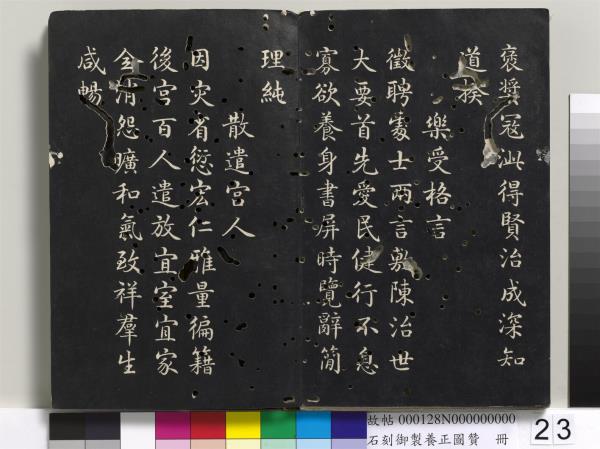 褒奬冠洲得賢治成深知
道揆
樂受格言
徵聘處士兩言敷陳治世
大要首先愛民健行不息
寡欲養身書屏時覽辭簡
理純
散遣宮人
因灾省愆宏仁雅量徧籍
後宮百人遣放宜室宜家
全消怨曠和氣致祥羣生
咸暢
故帖 000128N000000000
石刻御製養正圖贊 冊
23